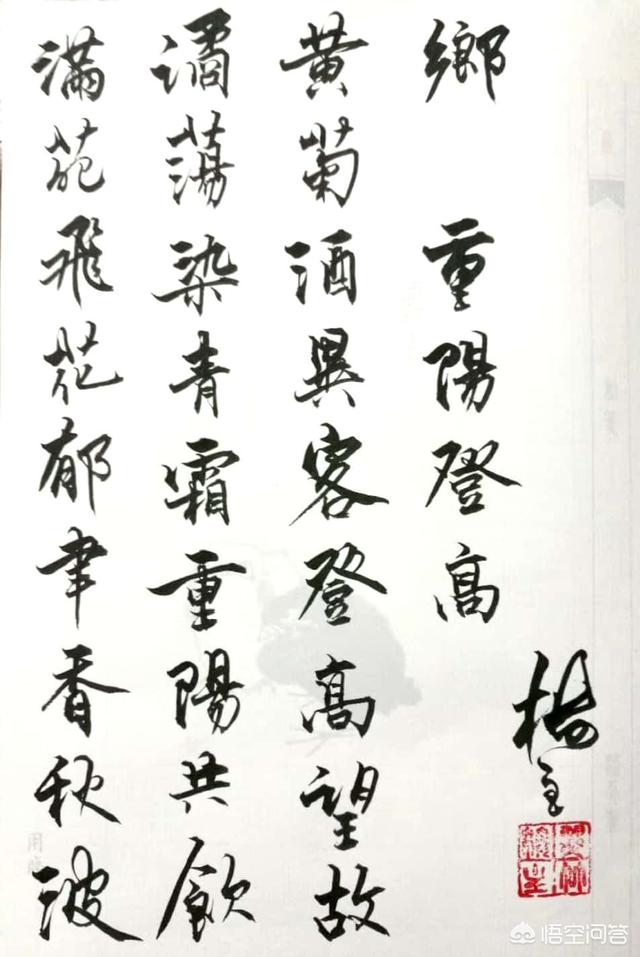 滿苑飛花郁聿香秋波
潏蕩染青霜重陽共飲
黄菊酒異客登高望故
鄉 重陽登高
楊
悟空问答